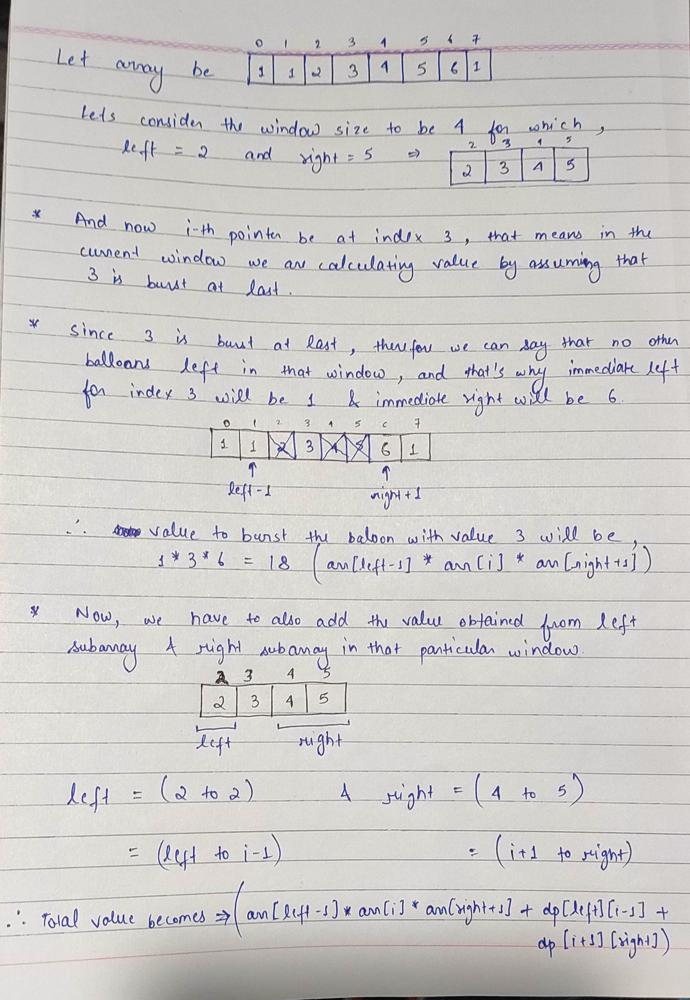 0 1 2 3 4 5 6 7
Let array be 1 1 2 3 4 5 6 1
Lets consider the window size to be 4 for which,
2 3 4 5
left = 2 and right = 5 ⇒ 2 3 4 5
* And now i-th pointer be at index 3, that means in the
current window we are calculating value by assuming that
3 is burst at last.
* Since 3 is burst at last, therefore we can say that no other
balloans left in that window, and that's why immediate left
for index 3 will be 1 & immediate right will be 6.
0 1 2 3 4 5 6 7
1 1 2 3 4 5 6 1
↑ ↑
left-1 right+1
∴ value to burst the baloon with value 3 will be,
1 * 3 * 6 = 18 (arr[left-1] * arr[i] * arr[right+1])
* Now, we have to also add the value obtained from left
subarray & right subarray in that particular window.
2 3 4 5
2 3 4 5
left right
left = (2 to 2) & right = (4 to 5)
= (left to i-1) = (i+1 to right)
∴ Total value becomes ⇒ (arr[left-1] * arr[i] * arr[right+1] + dp[left][i-1] +
dp[i+1][right])